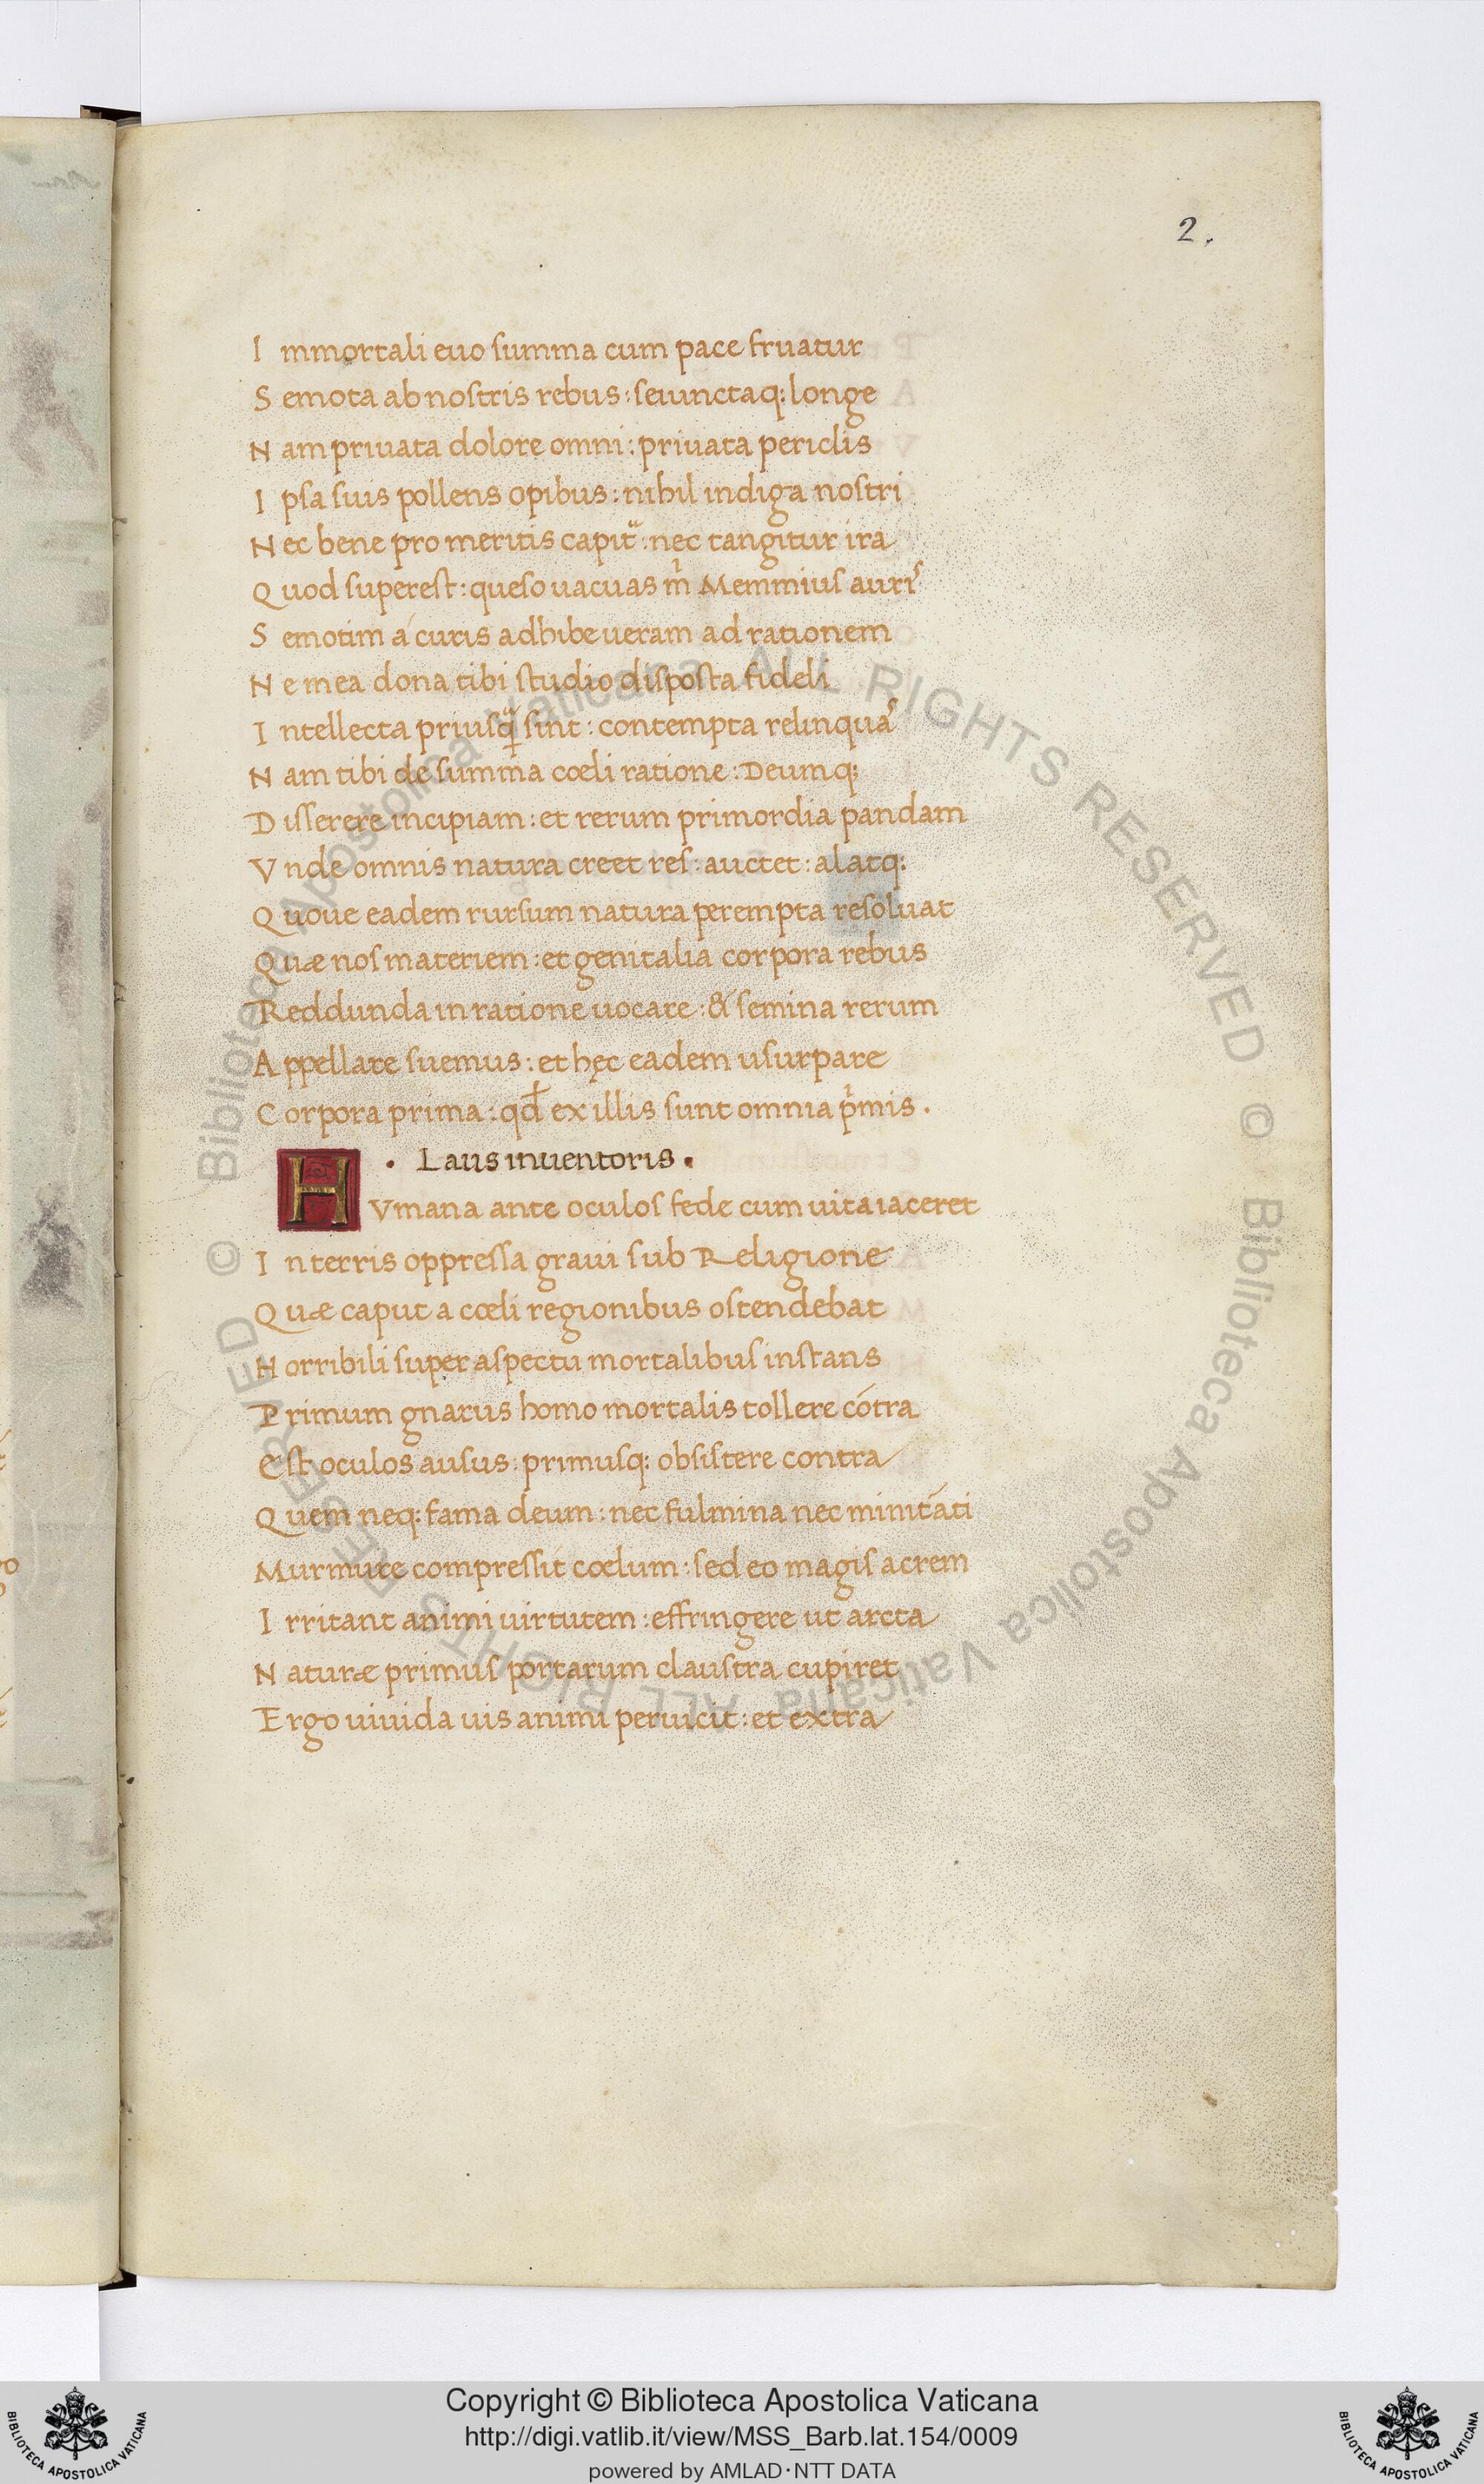 2.
Immortali euo summa cum pace fruatur
Semota ab nostris rebus: seiunctaq; longe
Nam priuata dolore omni: priuata periclis
Ipsa suis pollens opibus: nihil indiga nostri
Nec bene pro meritis capit᷑: nec tangitur ira
Quod superest: queso uacuas m̃ Memmius auris
Semotim á curis adhibe ueram ad rationem
Ne mea dona tibi studio disposta fideli
Intellecta priusq̃ sint: contempta relinquas
Nam tibi de summa cœli ratione: Deumq;
Disserere incipiam: et rerum primordia pandam
Vnde omnis natura creet res: auctet: alatq;
Quoue eadem rursum natura perempta resoluat
Quæ nos materiem: et genitalia corpora rebus
Reddunda in ratione uocare: & semina rerum
Appellare suemus: et hęc eadem usurpare
Corpora prima: qđ ex illis sunt omnia p̃mis.
• Laus inuentoris •
HVmana ante oculos fede cum uita iaceret
In terris oppressa graui sub Religione
Quæ caput a cœli regionibus ostendebat
Horribili super aspectu mortalibus instans
Primum gnarus homo mortalis tollere cõtra
Est oculos ausus: primusq; obsistere contra
Quem neq; fama deum: nec fulmina nec minitãti
Murmure compressit cœlum: sed eo magis acrem
Irritant animi uirtutem: effringere ut arcta
Naturæ primus portarum claustra cupiret
Ergo uiuida uis animi peruicit: et extra
© Biblioteca Apostolica Vaticana ALL RIGHTS RESERVED
© Biblioteca Apostolica Vaticana ALL RIGHTS RESERVED
Copyright © Biblioteca Apostolica Vaticana
http://digi.vatlib.it/view/MSS_Barb.lat.154/0009
powered by AMLAD·NTT DATA
BIBLIOTECA APOSTOLICA VATICANA
BIBLIOTECA APOSTOLICA VATICANA